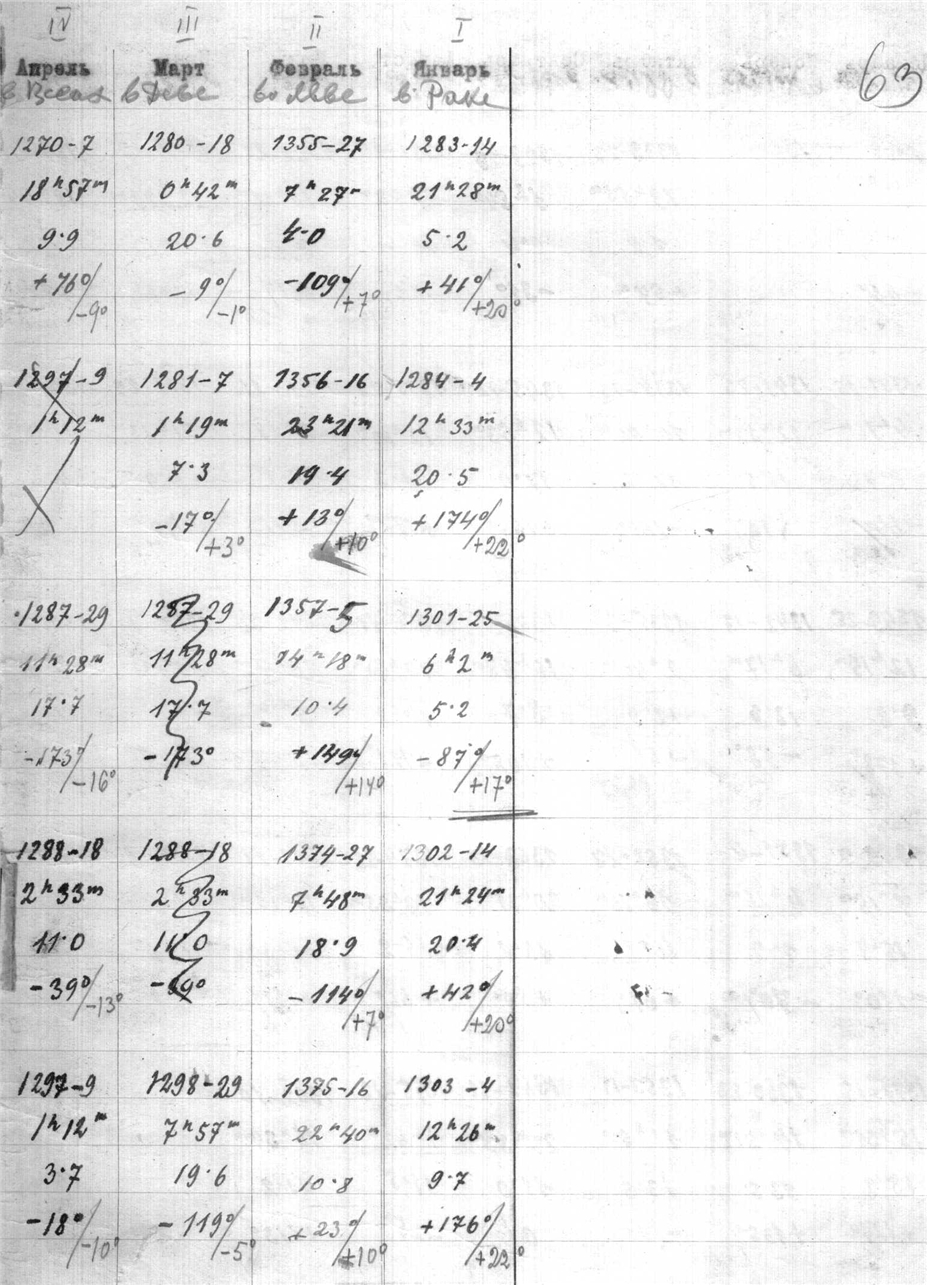 IV III II I
Апрель Март Февраль Январь 63
в Весах в Деве во Льве в Раке
1270-7 1280-18 1355-27 1283-14
18ʰ57ᵐ 0ʰ42ᵐ 7ʰ27ᵐ 21ʰ28ᵐ
9·9 20·6 4·0 5·2
+76°/-9° -9°/-1° -109°/+7° +41°/+20°
1297-9 1281-7 1356-16 1284-4
1ʰ12ᵐ 1ʰ19ᵐ 23ʰ21ᵐ 12ʰ33ᵐ
7·3 19·4 20·5
-17°/+3° +13°/+10° +174°/+22°
1287-29 1287-29 1357-5 1301-25
11ʰ28ᵐ 11ʰ28ᵐ 14ʰ18ᵐ 6ʰ2ᵐ
17·7 17·7 10·4 5·2
-173°/-16° -173° +149°/+14° -87°/+17°
1288-18 1288-18 1374-27 1302-14
2ʰ33ᵐ 2ʰ33ᵐ 7ʰ48ᵐ 21ʰ24ᵐ
11·0 11·0 18·9 20·4
-39°/-13° -39° -114°/+7° +42°/+20°
1297-9 1298-29 1375-16 1303-4
1ʰ12ᵐ 7ʰ57ᵐ 22ʰ40ᵐ 12ʰ26ᵐ
3·7 19·6 10·8 9·7
-18°/-10° -119°/-5° +23°/+10° +176°/+22°